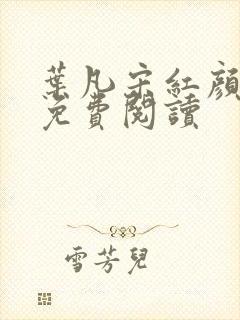 葉凡宋紅顏
免費閱讀
雪芳兒